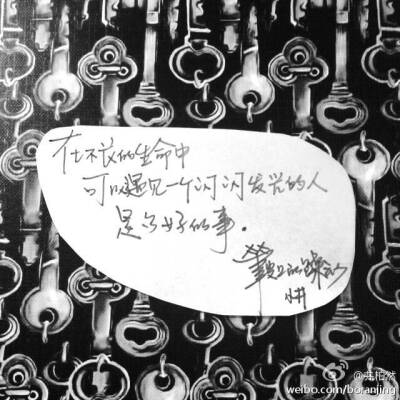 在不长的生命中
可以遇见一个闪闪发光的人
是多好的事.
小井
@井柏然
weibo.com/boranjing